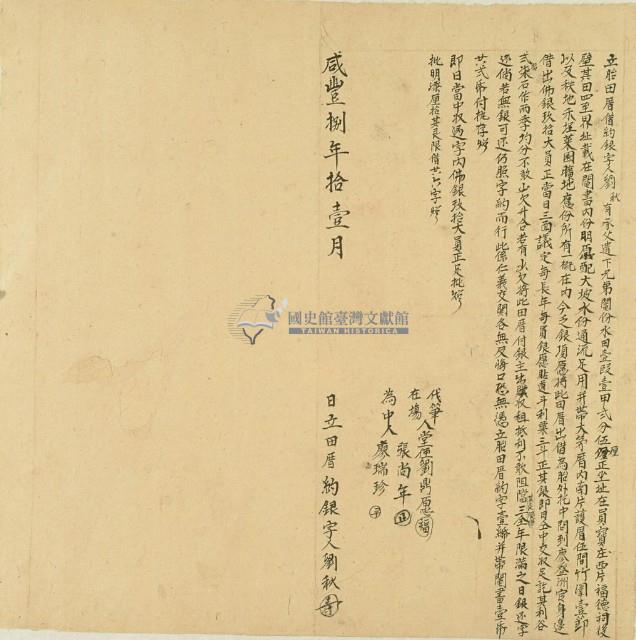 立胎田厝借約銀字人劉秋有承父遺下兄弟鬮份水田壹段壹甲弍分伍厘正坐址在員寶庄西片福德祠後
壁其田四至界址載在鬮書內份明愿配大坡水份通流足用并帶大茅厝內南片護厝伍間竹圍壹
以及秧地禾埕菜園牆地應份所有一概在內今乏銀項愿將此田厝出借為胎外托中問到廖盛洲官身邊
借出佛銀玖拾大員正當日三面議定每長年每員銀應貼道斗利粟三斗正其銀即日仝中交收足訖其利谷
弍柒石作兩季均分不敢少欠升合若有少欠將此田厝付銀主出收租抵利不敢阻當三全年限滿之日銀還字
还倘若無銀可还仍照字納而行此係仁義交關各無反悔口恐無憑立胎田厝約字壹紙并帶鬮書壹
共弍帋付执存炤
即日當中收過字內佛銀玖拾大員正足批炤
批明
咸豐捌年拾壹月
代筆人堂侄劉鼎愿
在場張尚年
為中人廖瑞珍
日立田厝約銀字人劉秋
國史館臺灣文獻館
TAIWAN HISTORICA